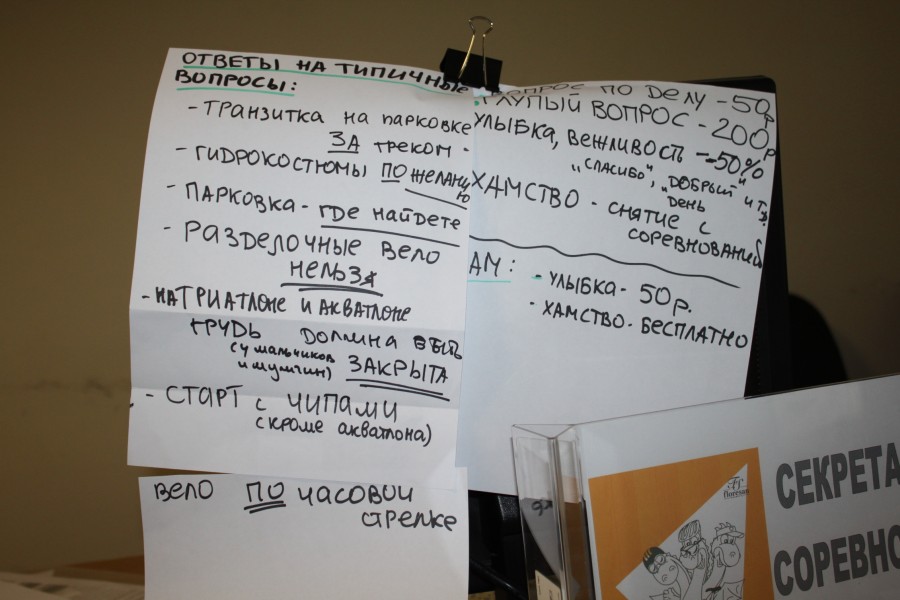 ОТВЕТЫ НА ТИПИЧНЫЕ
ВОПРОСЫ:
- ТРАНЗИТКА НА ПАРКОВКЕ
ЗА ТРЕКОМ -
- ГИДРОКОСТЮМЫ ПО ЖЕЛАНИЮ
- ПАРКОВКА - ГДЕ НАЙДЕТЕ
- РАЗДЕЛОЧНЫЕ ВЕЛО
НЕЛЬЗЯ
- НА ТРИАТЛОНЕ И АКВАТЛОНЕ
ГРУДЬ ДОЛЖНА БЫТЬ
(У МАЛЬЧИКОВ
И МУЖЧИН) ЗАКРЫТА
- СТАРТ С ЧИПАМИ
(КРОМЕ АКВАТЛОНА)
ВЕЛО ПО ЧАСОВОЙ
СТРЕЛКЕ
ВОПРОС ПО ДЕЛУ - 50р
ГЛУПЫЙ ВОПРОС - 200р
УЛЫБКА, ВЕЖЛИВОСТЬ - -50%
"СПАСИБО", "ДОБРЫЙ
ДЕНЬ" И Т.
ХАМСТВО - СНЯТИЕ С
СОРЕВНОВАНИЙ
АМ:
- УЛЫБКА - 50р.
- ХАМСТВО - БЕСПЛАТНО
floresan
СЕКРЕТА
СОРЕВНО